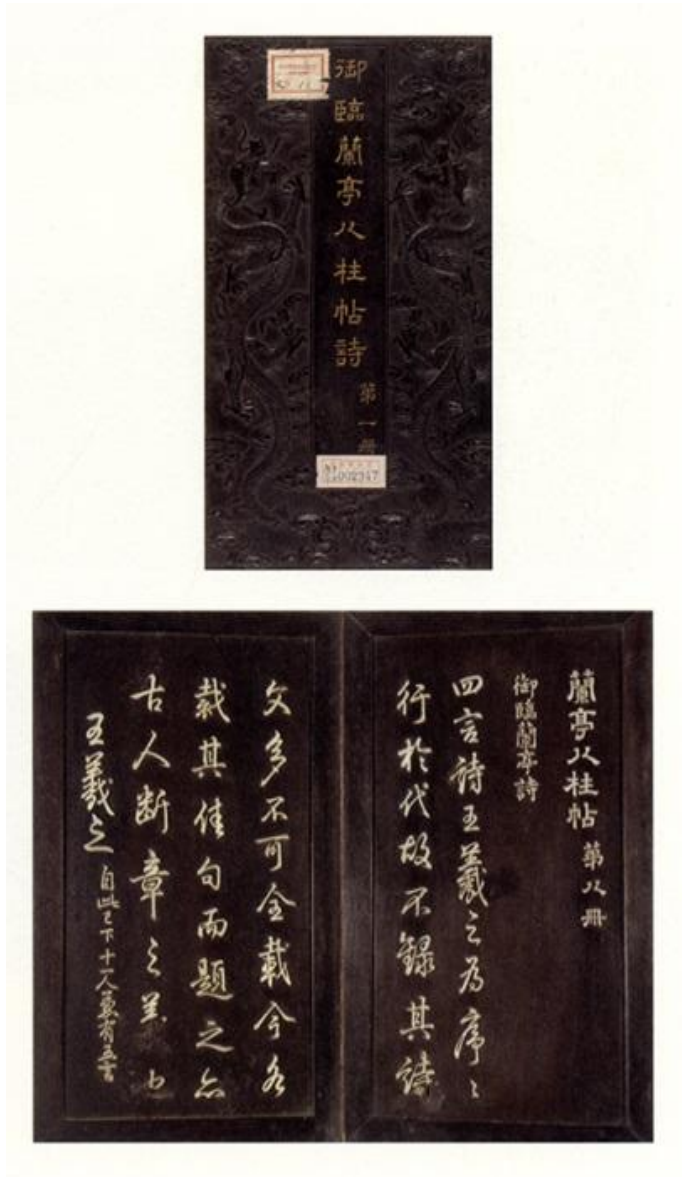 御臨蘭亭八柱帖詩 第一冊
002347
蘭亭八柱帖 第八冊
御臨蘭亭詩
四言詩王羲之為序〻
行於代故不録其詩
文多不可全載今各
裁其佳句而題之亦
古人断章之義也
王羲之 自此已下十一人兼有五言